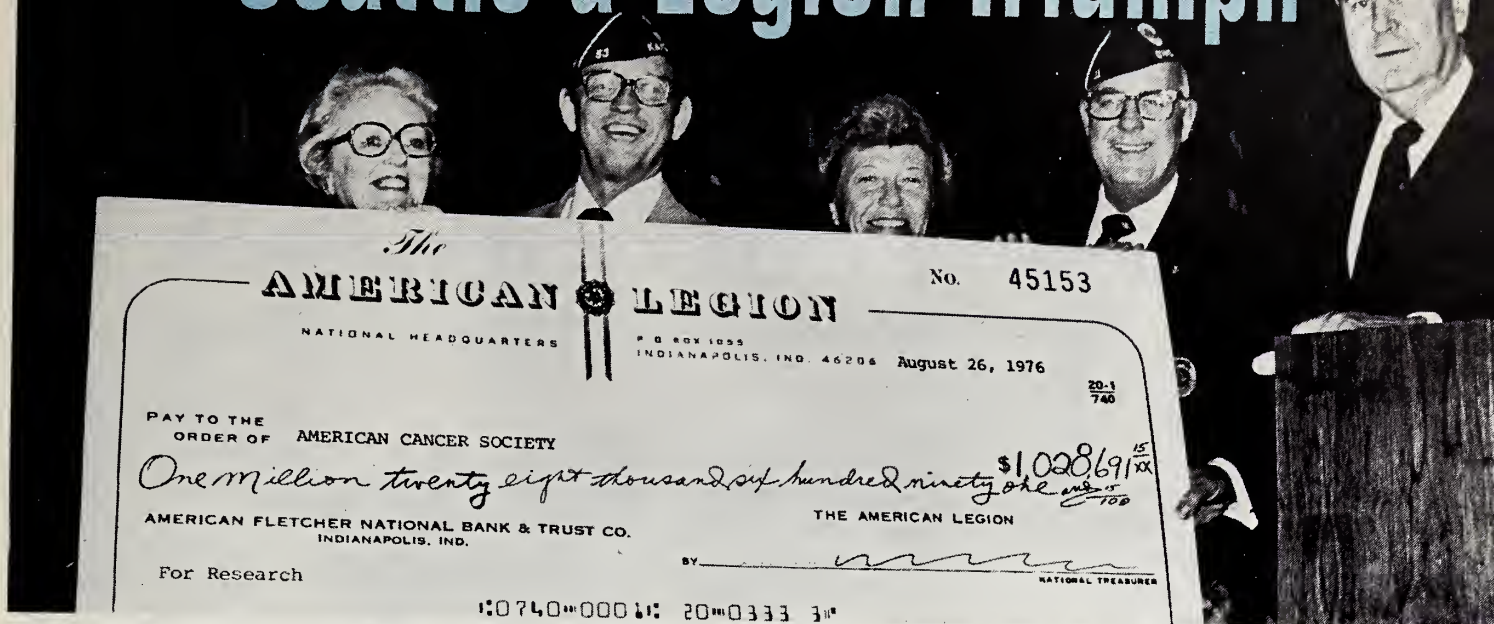 Seattle a Legion Triumph
The
AMERICAN LEGION
No. 45153
NATIONAL HEADQUARTERS
P O BOX 1055
INDIANAPOLIS, IND. 46206 August 26, 1976
20-1
740
PAY TO THE
ORDER OF AMERICAN CANCER SOCIETY
$1,028,691 15/XX
One million twenty eight thousand six hundred ninety one and 15/100
AMERICAN FLETCHER NATIONAL BANK & TRUST CO.
INDIANAPOLIS, IND.
THE AMERICAN LEGION
BY
NATIONAL TREASURER
For Research
⑆0740⑉0001⑆ 20⑉0333 3⑈